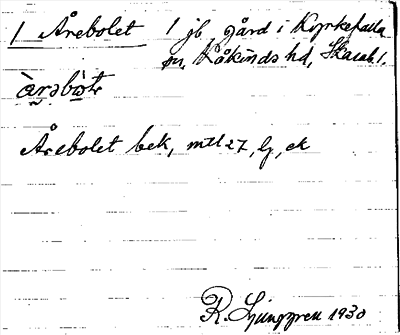 1 Årebolet 1 jb, gård i Kyrkefalla
sn, Kåkinds hd, Skarab l.
àrəbὼtɛ
Årebolet bek, mtl 27, lj, ek
R. Ljunggren 1930